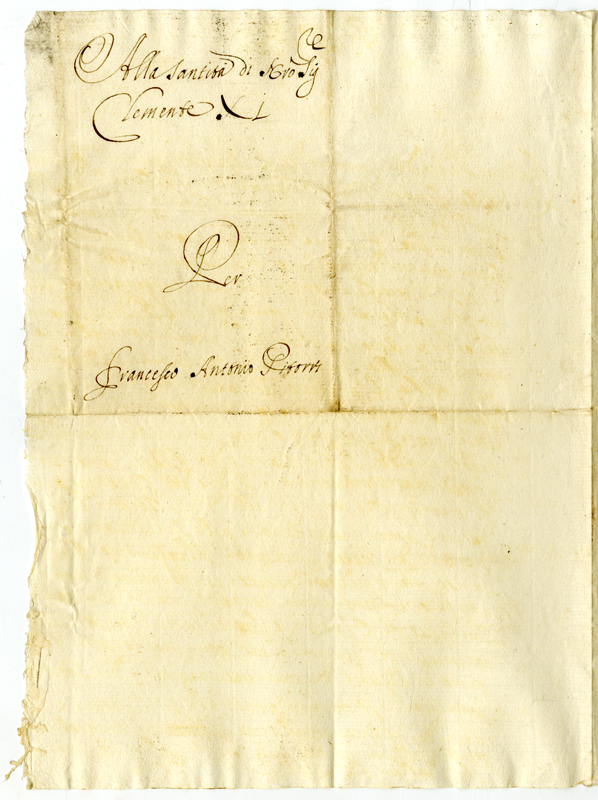 Alla Santità di Nrõ Sig.re
Clemente XI
Per
Francesco Antonio